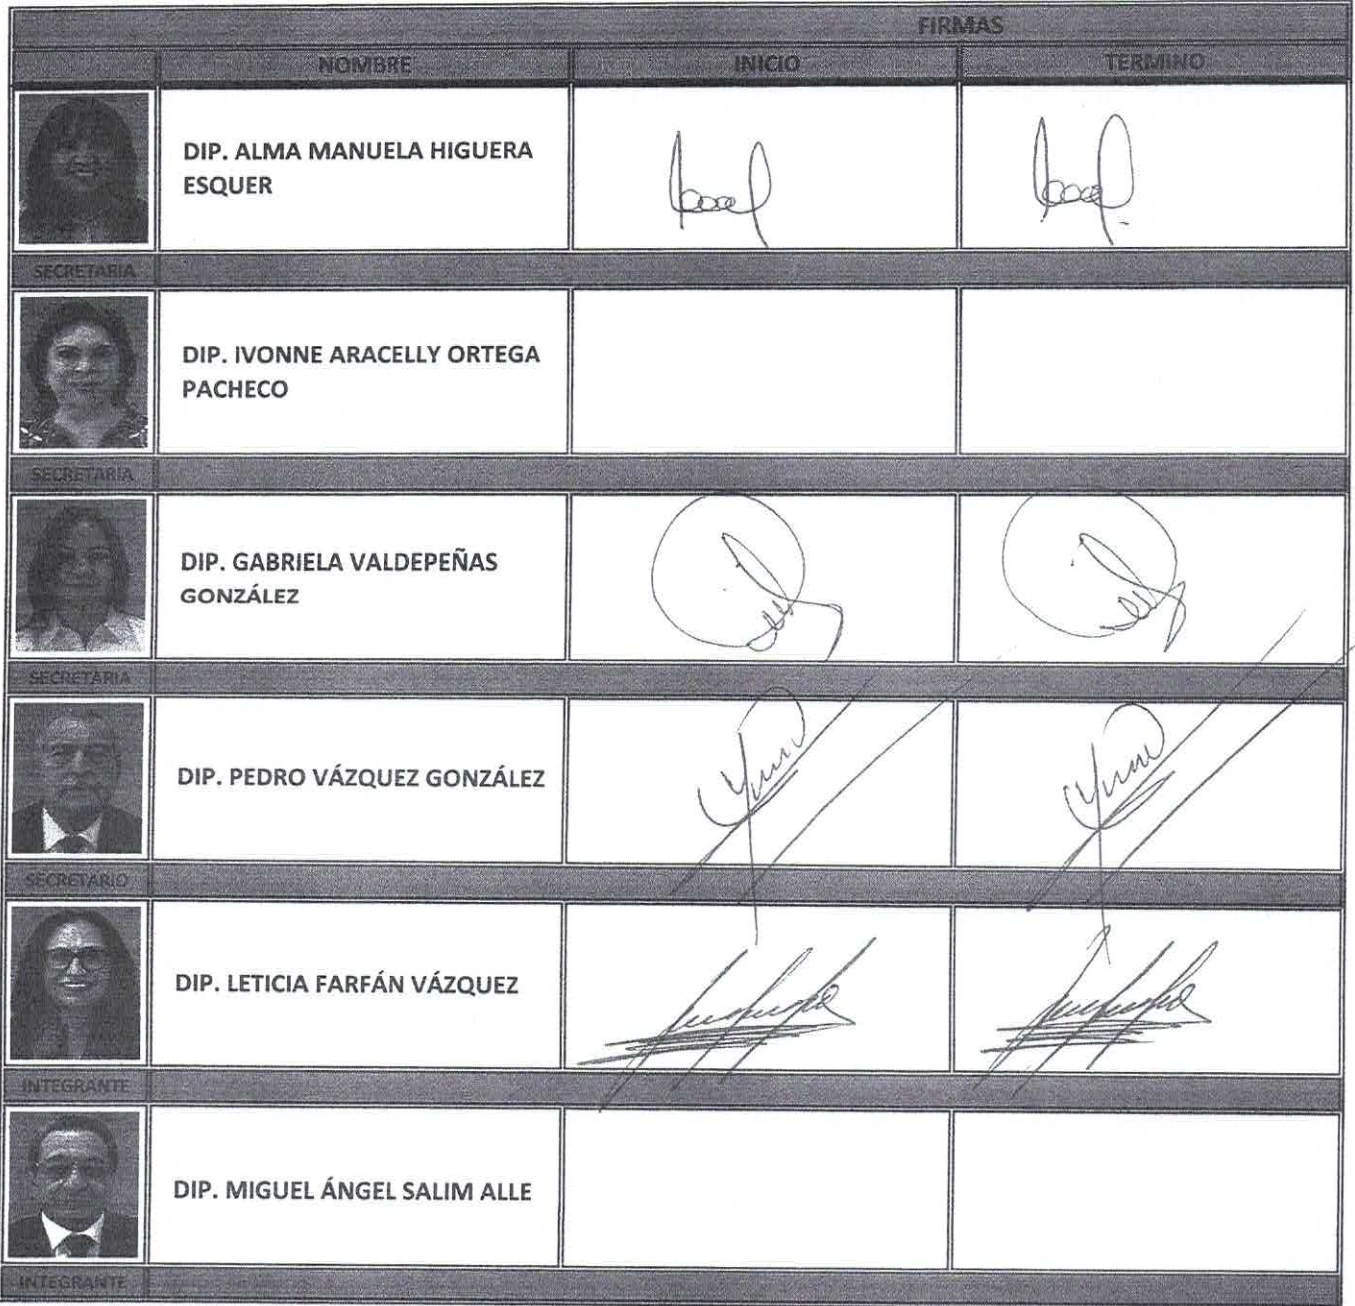 FIRMAS
NOMBRE INICIO TERMINO
DIP. ALMA MANUELA HIGUERA
ESQUER
SECRETARIA
DIP. IVONNE ARACELLY ORTEGA
PACHECO
SECRETARIA
DIP. GABRIELA VALDEPEÑAS
GONZÁLEZ
SECRETARIA
DIP. PEDRO VÁZQUEZ GONZÁLEZ
SECRETARIO
DIP. LETICIA FARFÁN VÁZQUEZ
INTEGRANTE
DIP. MIGUEL ÁNGEL SALIM ALLE
INTEGRANTE